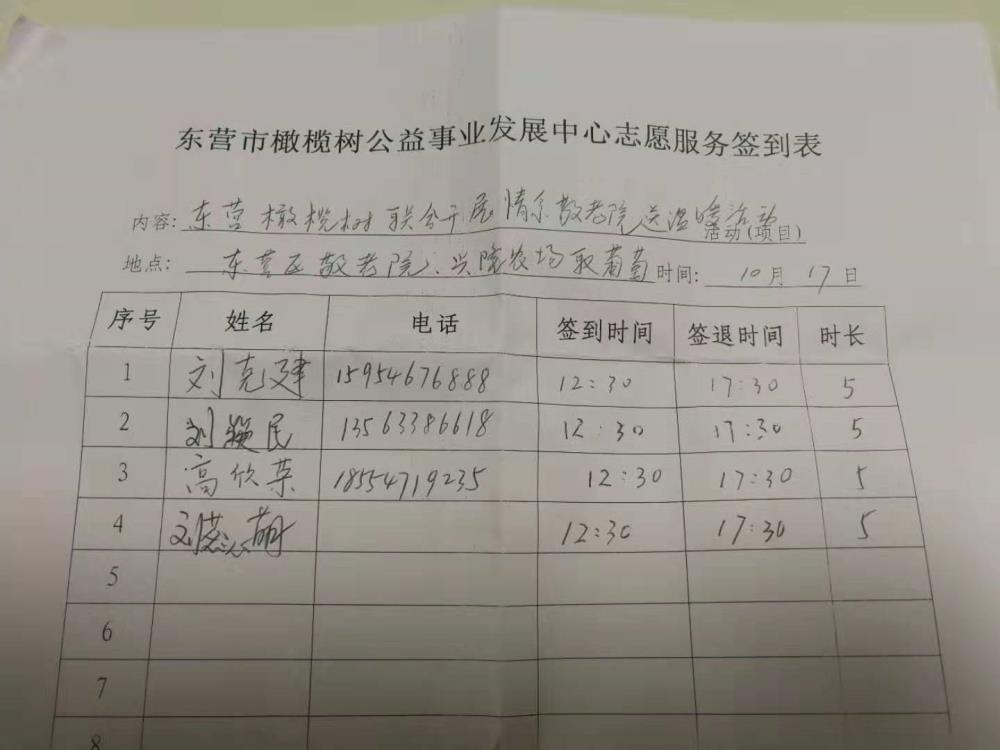 东营市橄榄树公益事业发展中心志愿服务签到表
内容: 东营橄榄树联合开展情系敬老院送温暖活动 活动(项目)
地点: 东营区敬老院、兴院农场取葡萄 时间: 10月17日
序号 姓名 电话 签到时间 签退时间 时长
1 刘克建 15954676888 12:30 17:30 5
2 刘 民 13563386618 12:30 17:30 5
3 高欣荣 18554719235 12:30 17:30 5
4 刘 萌 12:30 17:30 5
5
6
7
8